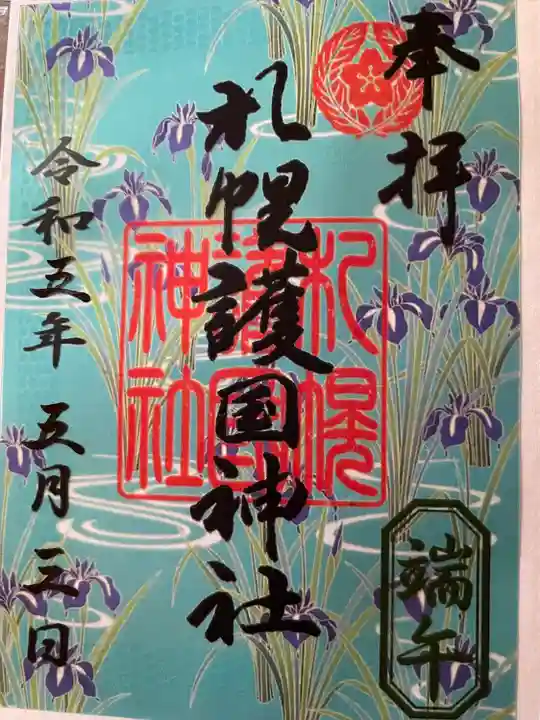 奉拝
札幌護国神社
札幌
護国
神社
令和五年 五月 三日
端午